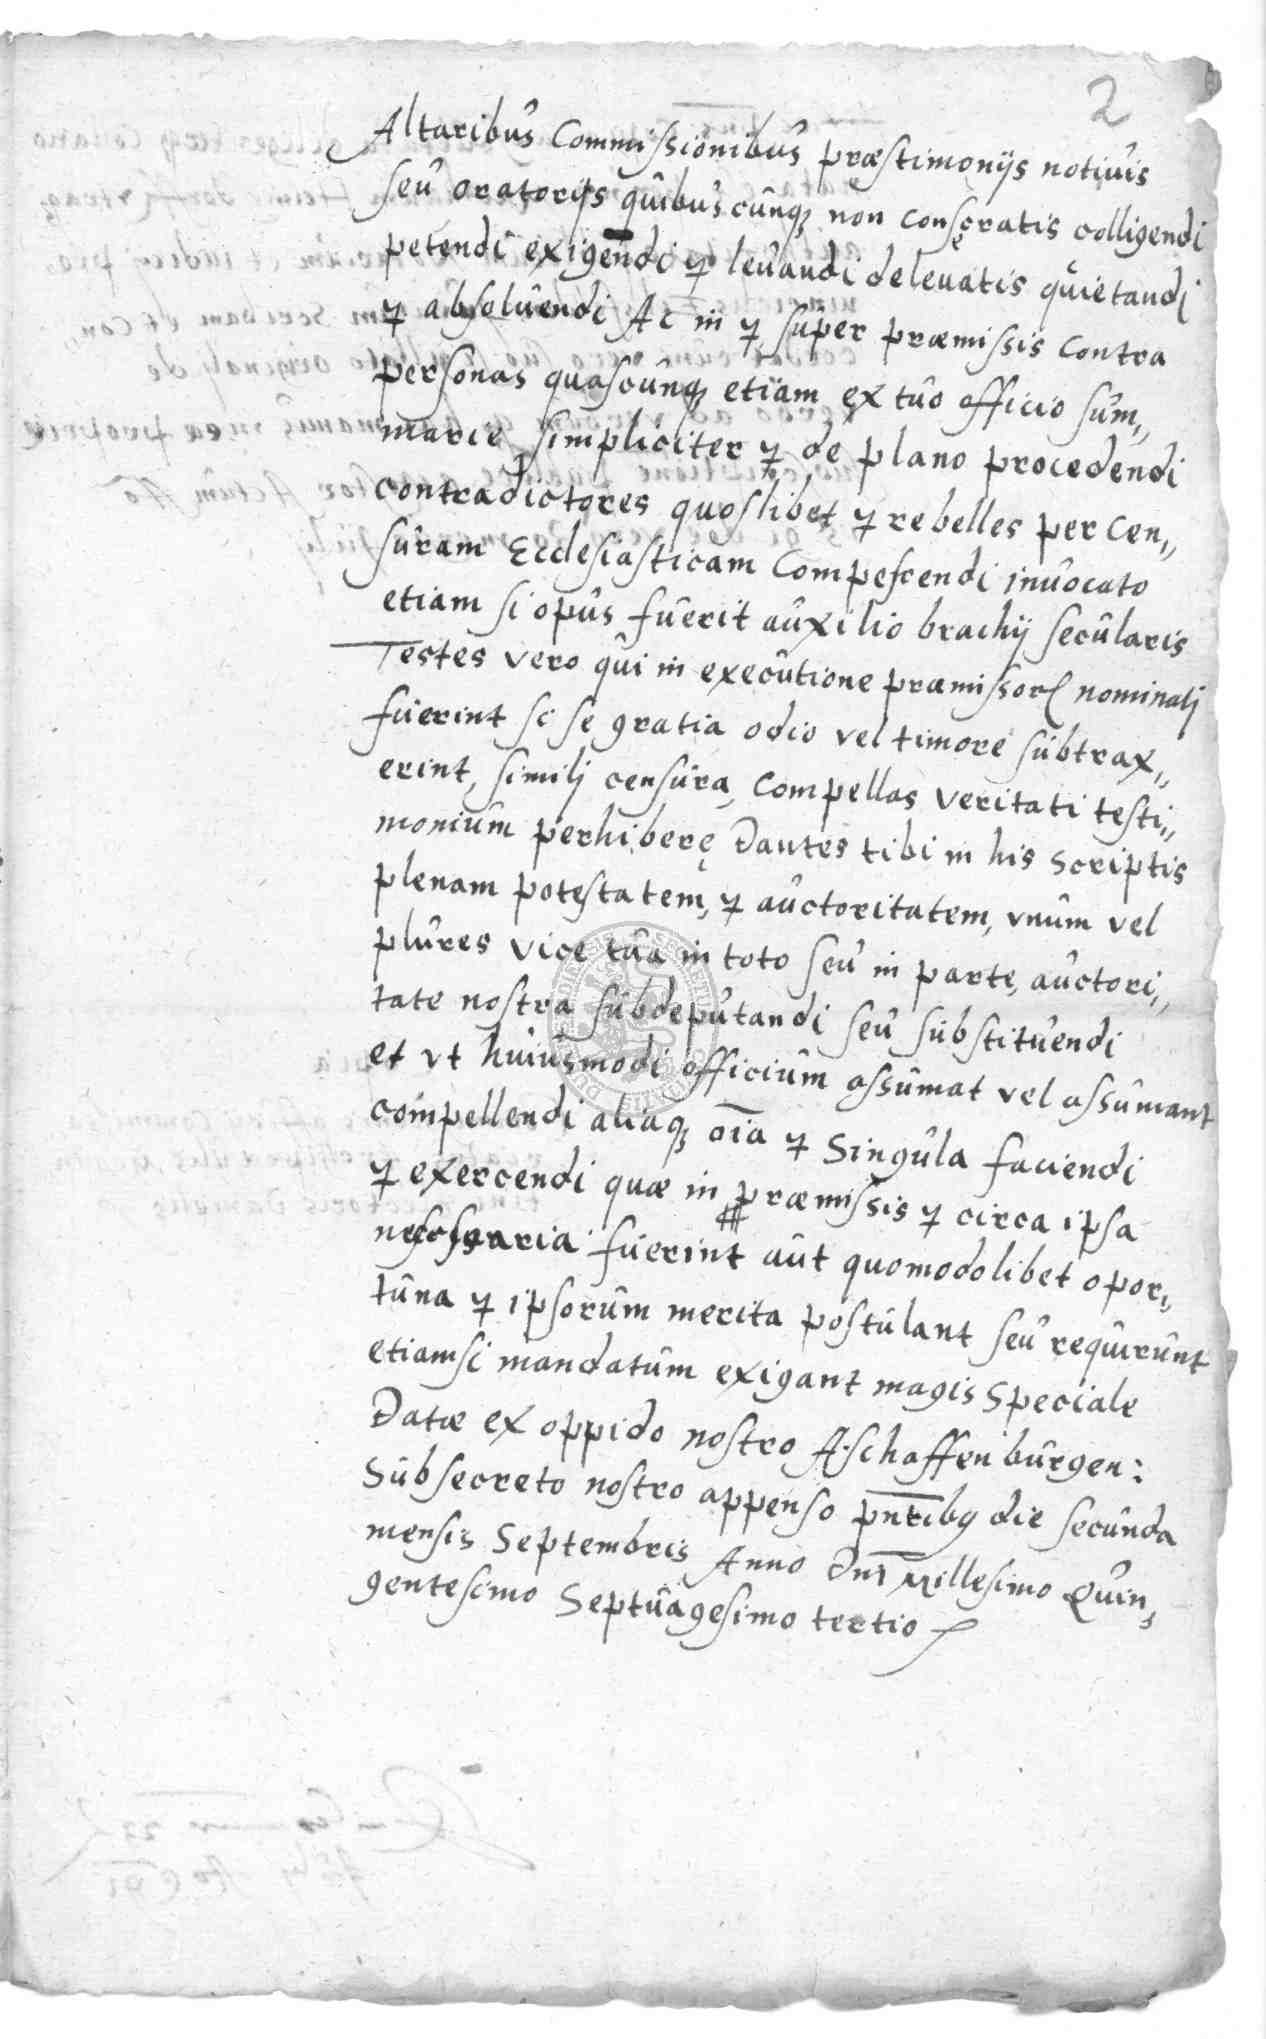 2
Altaribus Commissionibus præstimonijs notiuis
seu oratorijs quibuscunq; non consecratis colligendi
petendi exigendi et leuandi de leuatis quietandi
et absoluendi Ac in et super præmissis contra
personas quascunq; etiam ex tuo officio sum„
marie simpliciter et de plano procedendi
contradictores quoslibet et rebelles per Cen„
suram Ecclesiasticam Compescendi inuocato
etiam si opus fuerit auxilio brachij secularis
Testes vero qui in executione præmissor nominatj
fuerint si se gratia odio vel timore subtrax„
erint, similj censura, Compellas veritati testi„
monium perhibere Dantes tibi in his scriptis
plenam potestatem, et auctoritatem, vnum vel
plures vice tua in toto seu in parte, auctori„
tate nostra subdeputandi seu substituendi
et vt huiusmodi officium assumat vel assumant
compellendi aliaq; oīa et singula faciendi
et exercendi quæ in præmissis et circa ipsa
necessaria fuerint aut quomodolibet opor„
tuna et ipsorum merita postulant seu requirunt
etiamsi mandatum exigant magis speciale
Datæ ex oppido nostro Aschaffenburgen:
Sub secreto nostro appenso pn̄tibq die secunda
mensis Septembris Anno Dnī Millesimo Quin„
gentesimo Septuagesimo tertio